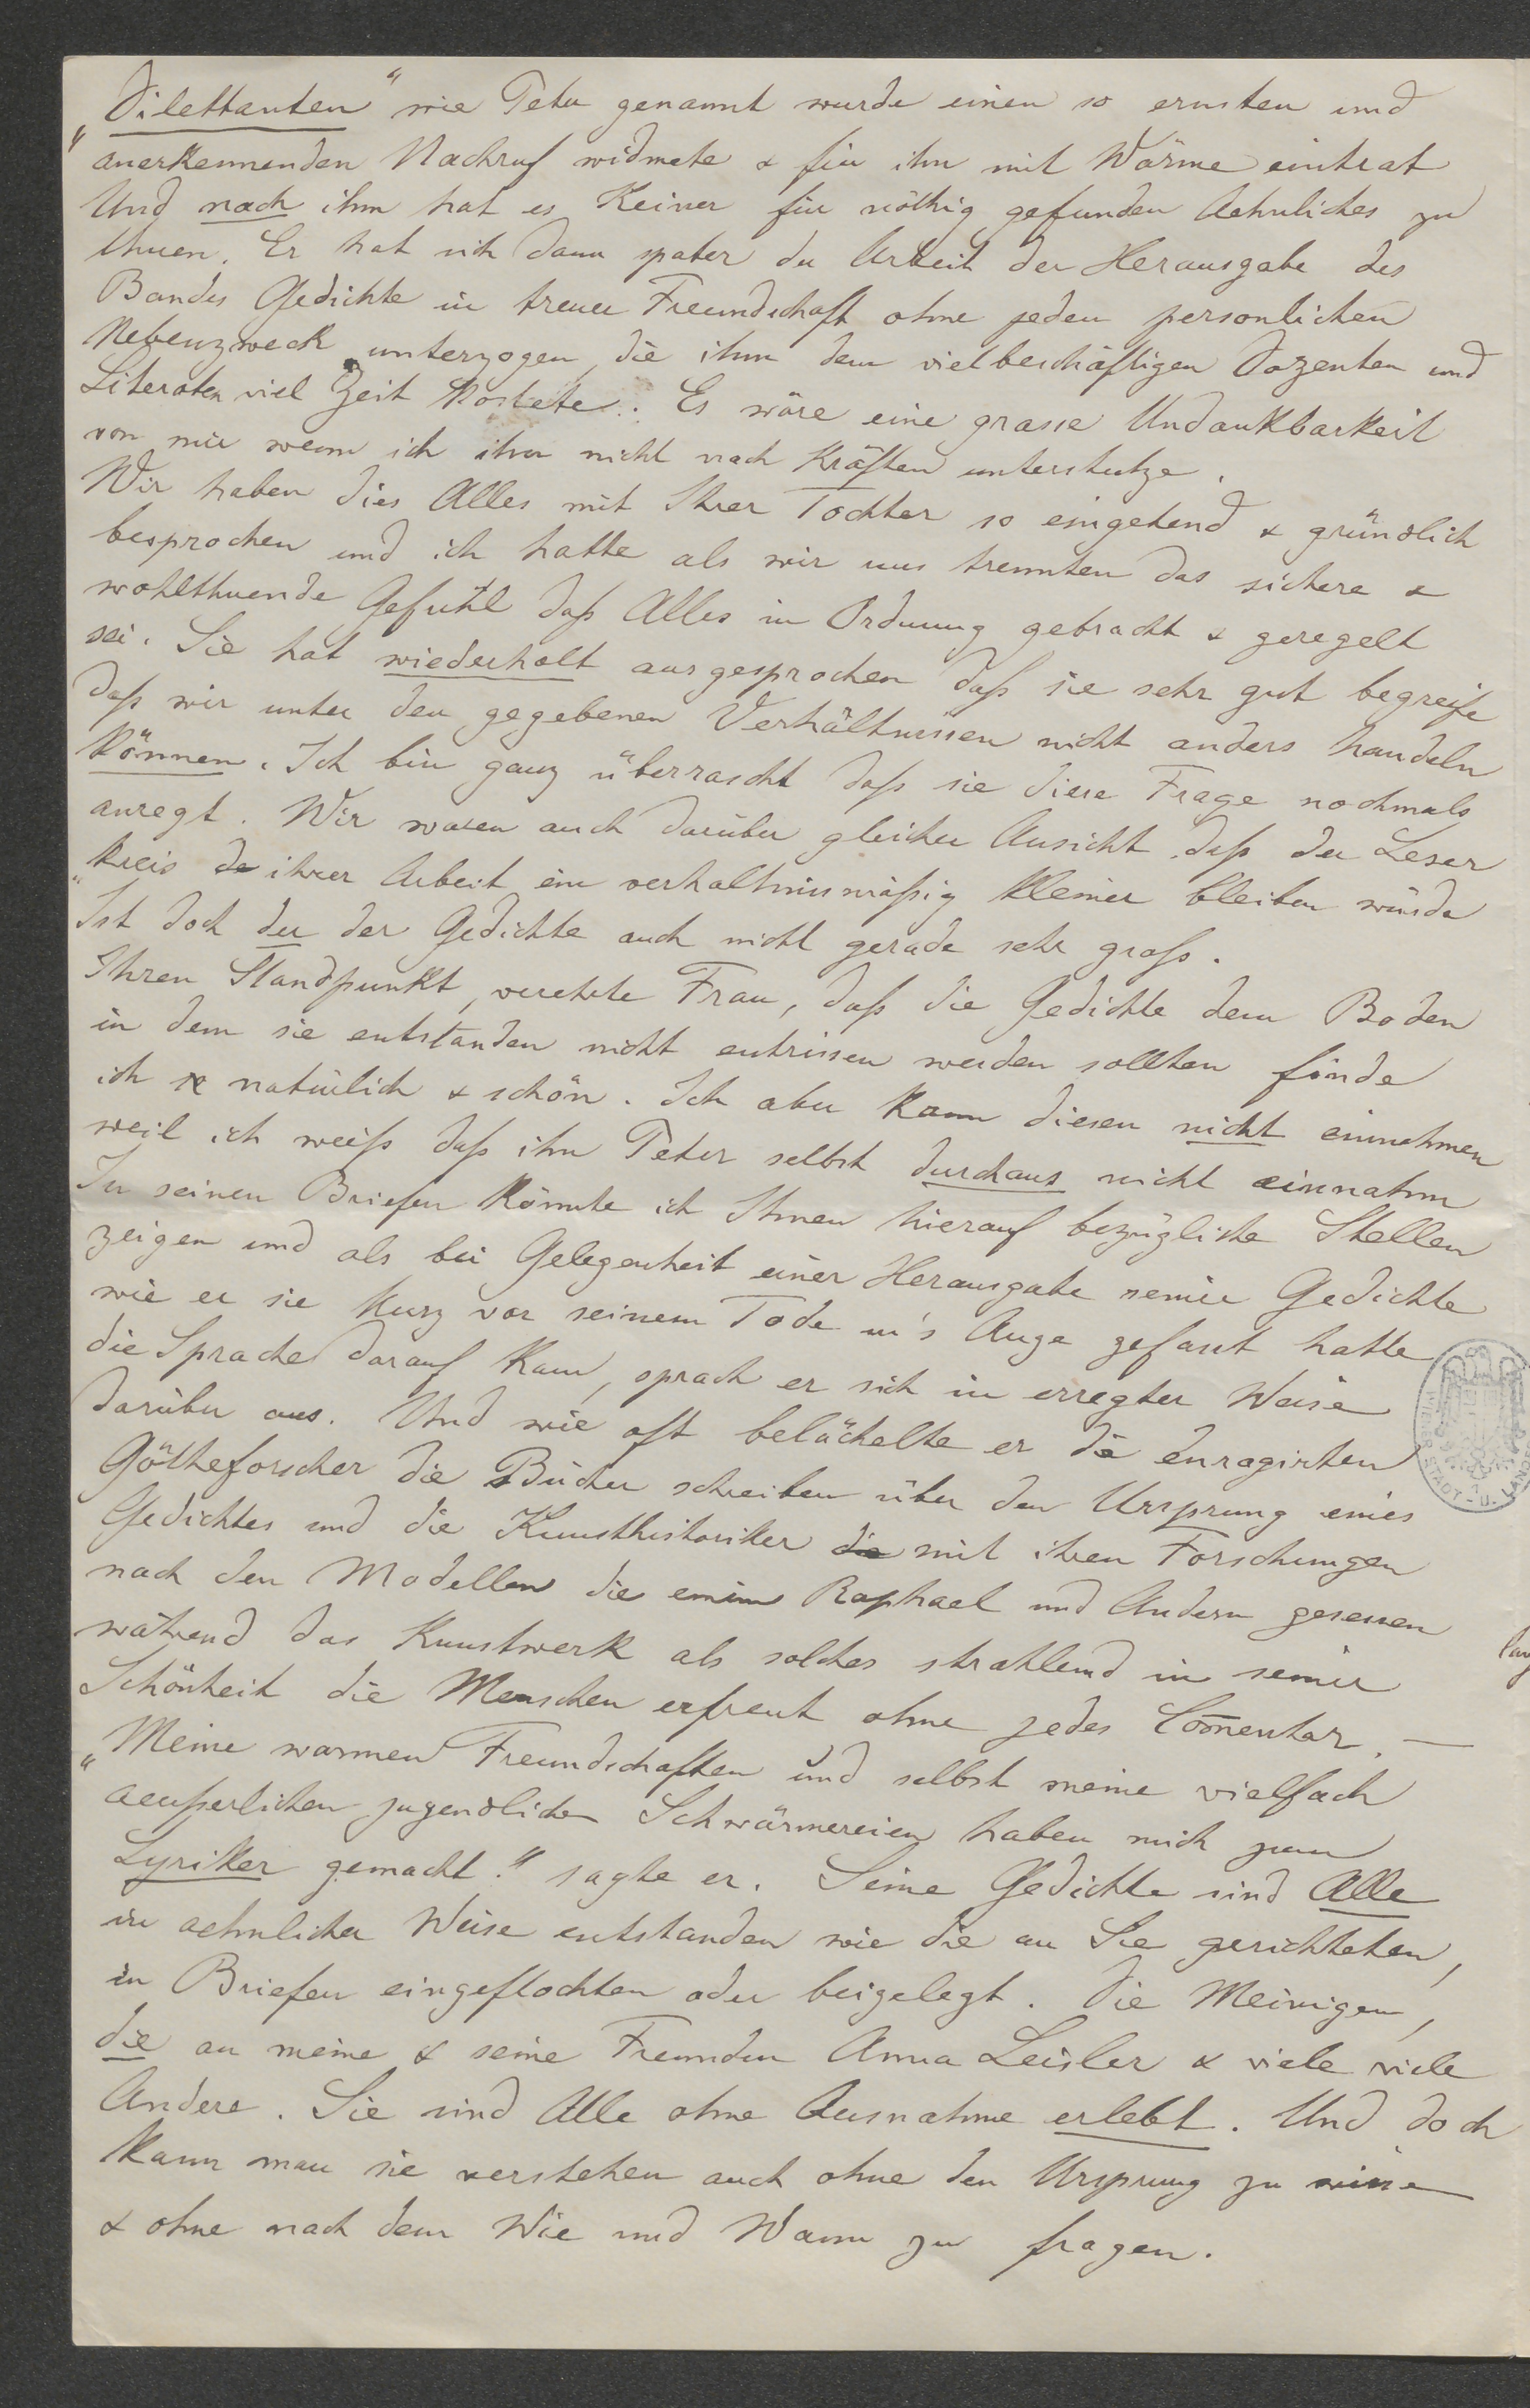 „Dilettanten“ wie Peter genannt wurde einen so ernsten und
anerkennenden Nachruf widmete & für ihn mit Wärme eintrat
Und nach ihm hat es Keiner für nöthig gefunden Aehnliches zu
thuen. Er hat sich dann spater der Arbeit der Herausgabe des
Bandes Gedichte in treuer Freundschaft ohne jeden personlichen
Nebenzweck unterzogen, die ihm dem vielbeschäftigen Dozenten und
Literaten viel Zeit kostete. Es wäre eine grasse Undankbarkeit
von mir wenn ich ihn nicht nach Kräften unterstutze.
Wir haben dies Alles mit Ihrer Tochter so eingehend & gründlich
besprochen und ich hatte als wir uns trennten das sichere &
wohlthuende Gefühl daß Alles in Ordnung gebracht & geregelt
sei. Sie hat wiederholt ausgesprochen daß sie sehr gut begreife
daß wir unter den gegebenen Verhältnissen nicht anders handeln
können. Ich bin ganz überrascht daß sie diese Frage nochmals
anregt. Wir waren auch darüber gleicher Ansicht, daß der Leser
„kreis de ihrer Arbeit ein verhaltnissmäßig kleiner bleiben würde
Ist doch der der Gedichte auch nicht gerade sehr groß.
Ihren Standpunkt, verehrte Frau, daß die Gedichte dem Boden
in dem sie entstanden nicht entrissen werden sollten finde
ich natürlich & schön. Ich aber kann diesen nicht einnehmen
weil ich weiß daß ihn Peter selbst durchaus nicht einnahm
In seinen Briefen könnte ich Ihnen hierauf bezügliche Stellen
zeigen und als bei Gelegenheit einer Herausgabe seiner Gedichte
wie er sie kurz vor seinem Tode in's Auge gefasst hatte
die Sprache darauf kam, sprach er sich in erregter Weise
darüber aus. Und wie oft belächelte er die enragirten
Götheforscher die Bücher schreiben über den Ursprung eines
Gedichtes und die Kunsthistoriker die mit ihren Forschungen
nach den Modellen die einem Raphael und Andern gesessen
während das Kunstwerk als solches strahlend in seiner
Schönheit die Menschen erfreut ohne jedes Com̅entar. —
„Meine warmen Freundschaften und selbst meine vielfach
aeußerlichen jugendlichen Schwärmereien haben mich zum
Lyriker gemacht.“ sagte er. Seine Gedichte sind Alle
in aehnlicher Weise entstanden wie die an Sie gerichteten,
in Briefen eingeflochten oder beigelegt. Die Meinigen,
die an meine & seine Freundin Anna Leisler & viele viele
Andere. Sie sind Alle ohne Ausnahme erlebt. Und doch
kann man sie verstehen auch ohne den Ursprung zu wissen
& ohne nach dem Wie und Wann zu fragen.